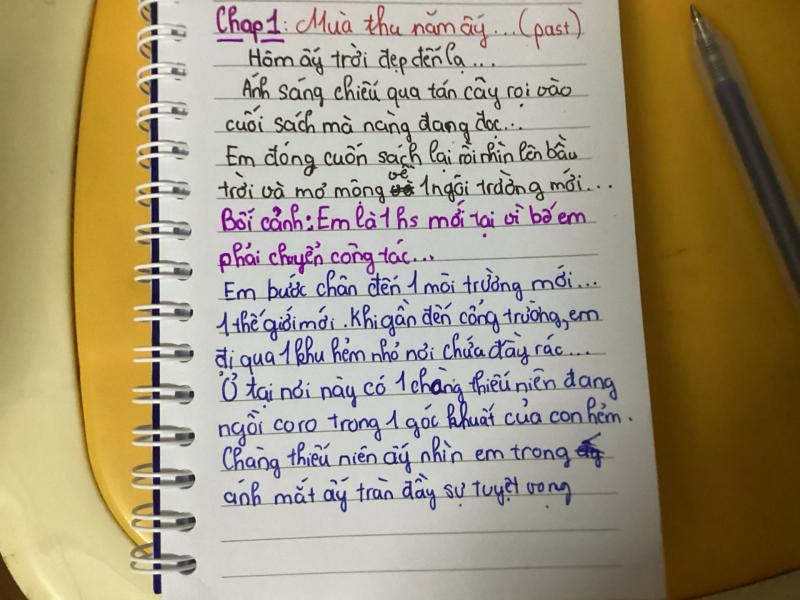 Chap 1: Mùa thu năm ấy...(past)
Hôm ấy trời đẹp đến lạ...
Ánh sáng chiếu qua tán cây rọi vào
cuối sách mà nàng đang đọc...
Em đóng cuốn sách lại rồi nhìn lên bầu
trời và mơ mộng về 1 ngôi trường mới...
Bối cảnh: Em là 1 hs mới tại vì bố em
phải chuyển công tác...
Em bước chân đến 1 môi trường mới...
1 thế giới mới. Khi gần đến cổng trường, em
đi qua 1 khu hẻm nhỏ nơi chứa đầy rác...
Ở tại nơi này có 1 chàng thiếu niên đang
ngồi co ro trong 1 góc khuất của con hẻm.
Chàng thiếu niên ấy nhìn em trong
ánh mắt ấy tràn đầy sự tuyệt vọng